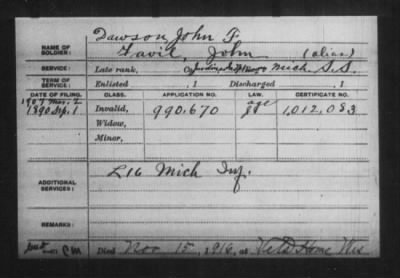 Dawson, John F.
NAME OF SOLDIER: Lavil, John (alias)
SERVICE: Late rank, Mich S.S.
TERM OF SERVICE: Enlisted , 1 Discharged , 1
DATE OF FILING. CLASS. APPLICATION NO. LAW. CERTIFICATE NO.
1907 Mar. 2 age
1890 Sep. 1 Invalid, 990,670 1,012,083
Widow,
Minor,
ADDITIONAL SERVICES: L 16 Mich Inf.
REMARKS:
Died Nov 15, 1916, at Vets Home Wis